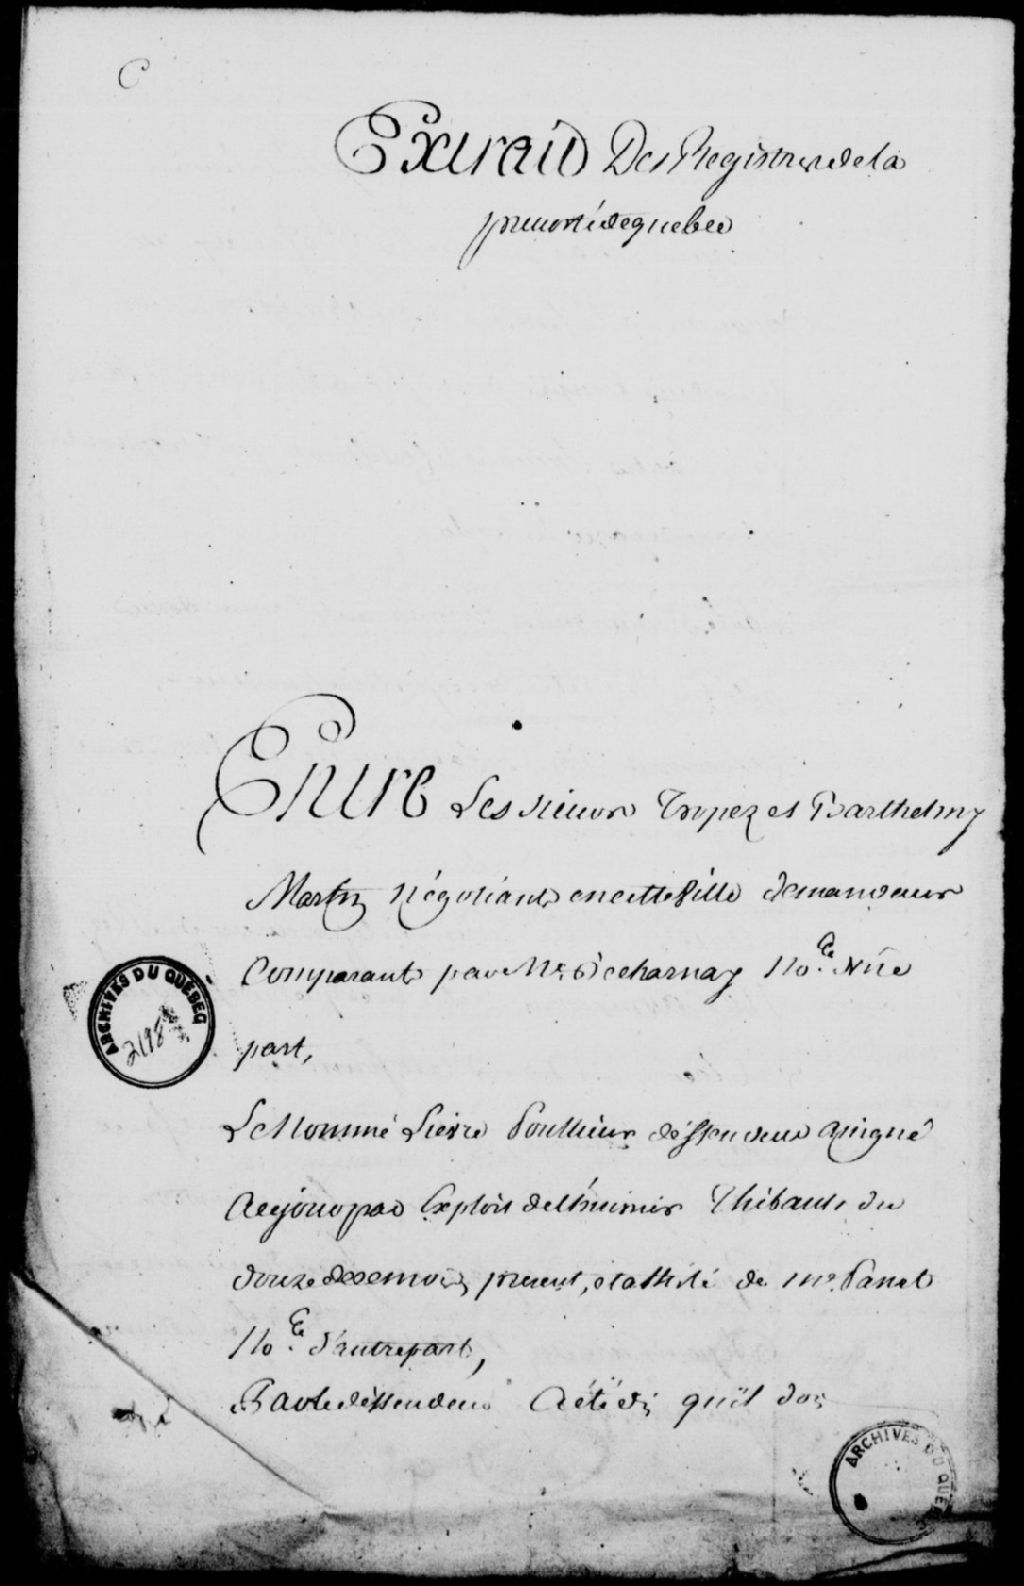 C
Extrait Des Registres de la
prevosté de quebec
Entre Les sieurs Tropez et Barthelmy
Martin Négotiants en cette Ville demandeurs
Comparant par Me. Decharnay No.e d'Une
part,
Le Nommé Pierre Ponthieux déffendeur assigné
a ce jour par Exploit de l'huissier Thibault du
douze de ce mois present, et assisté de me. Panet
No.e d'autre part,
Par le déffendeur a été dit qu'il doit
ARCHIVES DU QUÉBEC
ARCHIVES DU QUÉBEC